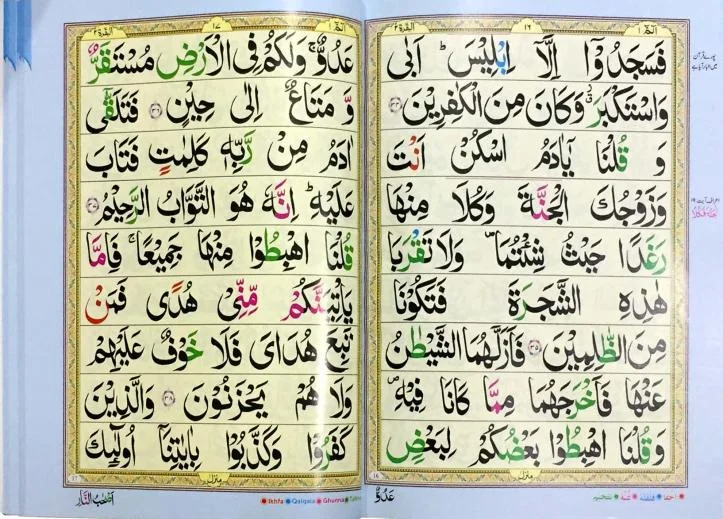 البقرة ٢
١٦
الٓمّٓ ١
فَسَجَدُوْۤا اِلَّاۤ اِبْلِيْسَ ؕ اَبٰى
وَاسْتَكْبَرَ ۗ وَكَانَ مِنَ الْكٰفِرِيْنَ ﴿۳۴﴾
وَ قُلْنَا يٰۤاٰدَمُ اسْكُنْ اَنْتَ
وَزَوْجُكَ الْجَنَّةَ وَكُلَا مِنْهَا
رَغَدًا حَيْثُ شِئْتُمَا ۪ وَلَا تَقْرَبَا
هٰذِهِ الشَّجَرَةَ فَتَكُوْنَا
مِنَ الظّٰلِمِيْنَ ﴿۳۵﴾ فَاَزَلَّهُمَا الشَّيْطٰنُ
عَنْهَا فَاَخْرَجَهُمَا مِمَّا كَانَا فِيْهِ ۪
وَقُلْنَا اهْبِطُوْا بَعْضُكُمْ لِبَعْضٍ
16
منزل ١
عَدُوٌّ
اخفا قلقلہ غنّہ تفخیم
البقرة ٢
١٧
الٓمّٓ ١
عَدُوٌّ ۚ وَلَكُمْ فِى الْاَرْضِ مُسْتَقَرٌّ
وَّ مَتَاعٌ اِلٰى حِيْنٍ ﴿۳۶﴾ فَتَلَقّٰٓى
اٰدَمُ مِنْ رَّبِّهٖ كَلِمٰتٍ فَتَابَ
عَلَيْهِ ؕ اِنَّهٗ هُوَ التَّوَّابُ الرَّحِيْمُ ﴿۳۷﴾
قُلْنَا اهْبِطُوْا مِنْهَا جَمِيْعًا ۚ فَاِمَّا
يَاْتِيَنَّكُمْ مِّنِّىْ هُدًى فَمَنْ
تَبِعَ هُدَاىَ فَلَا خَوْفٌ عَلَيْهِمْ
وَلَا هُمْ يَحْزَنُوْنَ ﴿۳۸﴾ وَالَّذِيْنَ
كَفَرُوْا وَكَذَّبُوْا بِاٰيٰتِنَاۤ اُولٰٓئِكَ
17
منزل ١
اَصْحٰبُ النَّارِ
Ikhfa Qalqala Ghunna